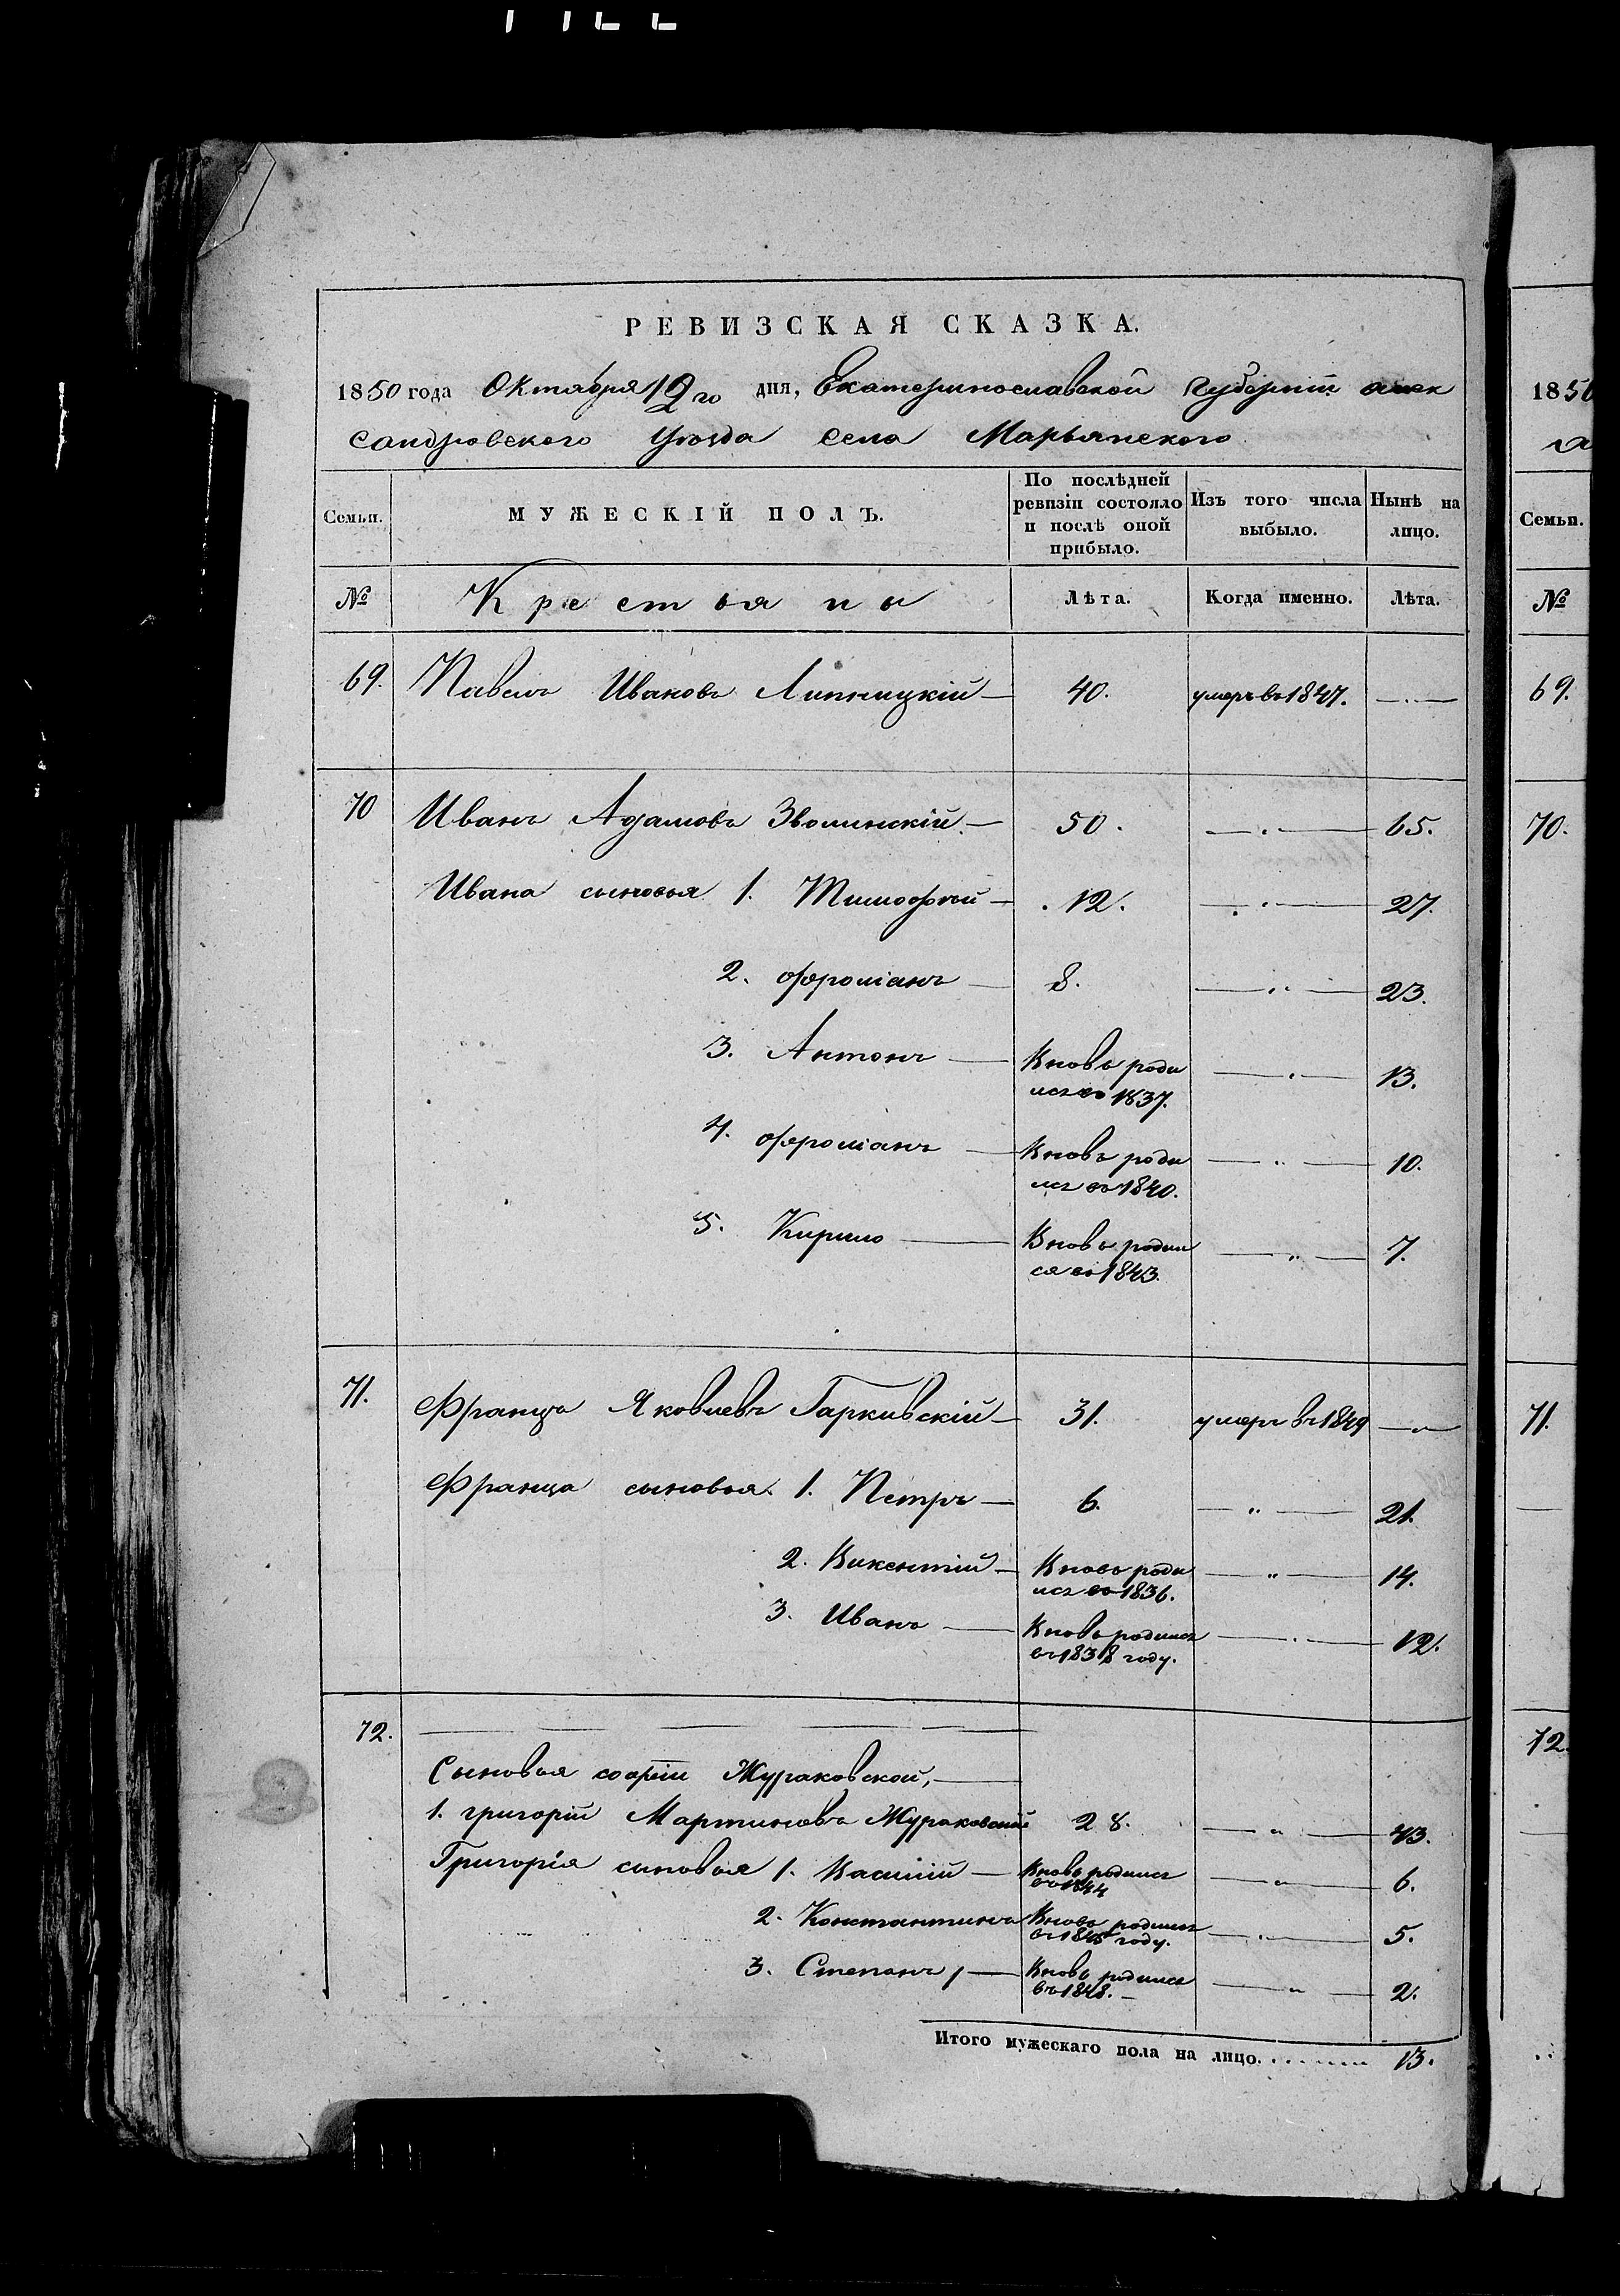 РЕВИЗСКАЯ СКАЗКА.
1850 года Октября 12го дня, Екатеринославской Губернiи алек
сандровского уѣзда села Марьянского
Семьи. МУЖЕСКІЙ ПОЛЪ. По послѣдней ревизіи состояло и послѣ оной прибыло. Изъ того числа выбыло. Нынѣ на лицо.
№ Крестьяны Лѣта. Когда именно. Лѣта.
69. Павелъ Ивановъ Липницкій — 40. умеръ въ 1847. —
70 Иванъ Адамовъ Зволинскій. — 50. — " — 65.
Ивана сыновья 1. Тимофѣй — 12. — " — 27.
2. Флоріанъ — 8. — " — 23.
3. Антонъ — Вновь роди
лсъ въ 1837. — " — 13.
4. Флоріанъ — Вновь роди
лсъ въ 1840. — " — 10.
5. Кирило — Вновь родил
ся въ 1843. — " — 7.
71. Францъ Яковлевъ Гаркивскій — 31. умеръ въ 1849 — " —
Франца сыновья 1. Петръ — 6. — " — 21.
2. Викентій — Вновь роди
лсъ въ 1836. — " — 14.
3. Иванъ — Вновь родилсъ
въ 1838 году. — " — 12.
72.
Сыновья софіи Жураковской, —
1. григорій Мартиновъ Жураковскій 28. — " — 43.
Григорія сыновья 1. Василій — Вновь родилсъ
въ 1844 — " — 6.
2. Константинъ Вновь родилсъ
въ 1845 году. — " — 5.
3. Степанъ, — Вновь родился
въ 1848. — — " — 2.
Итого мужескаго пола на лицо. . . . . . . . 13.
1850
Семьи.
№
69.
70.
71.
72.